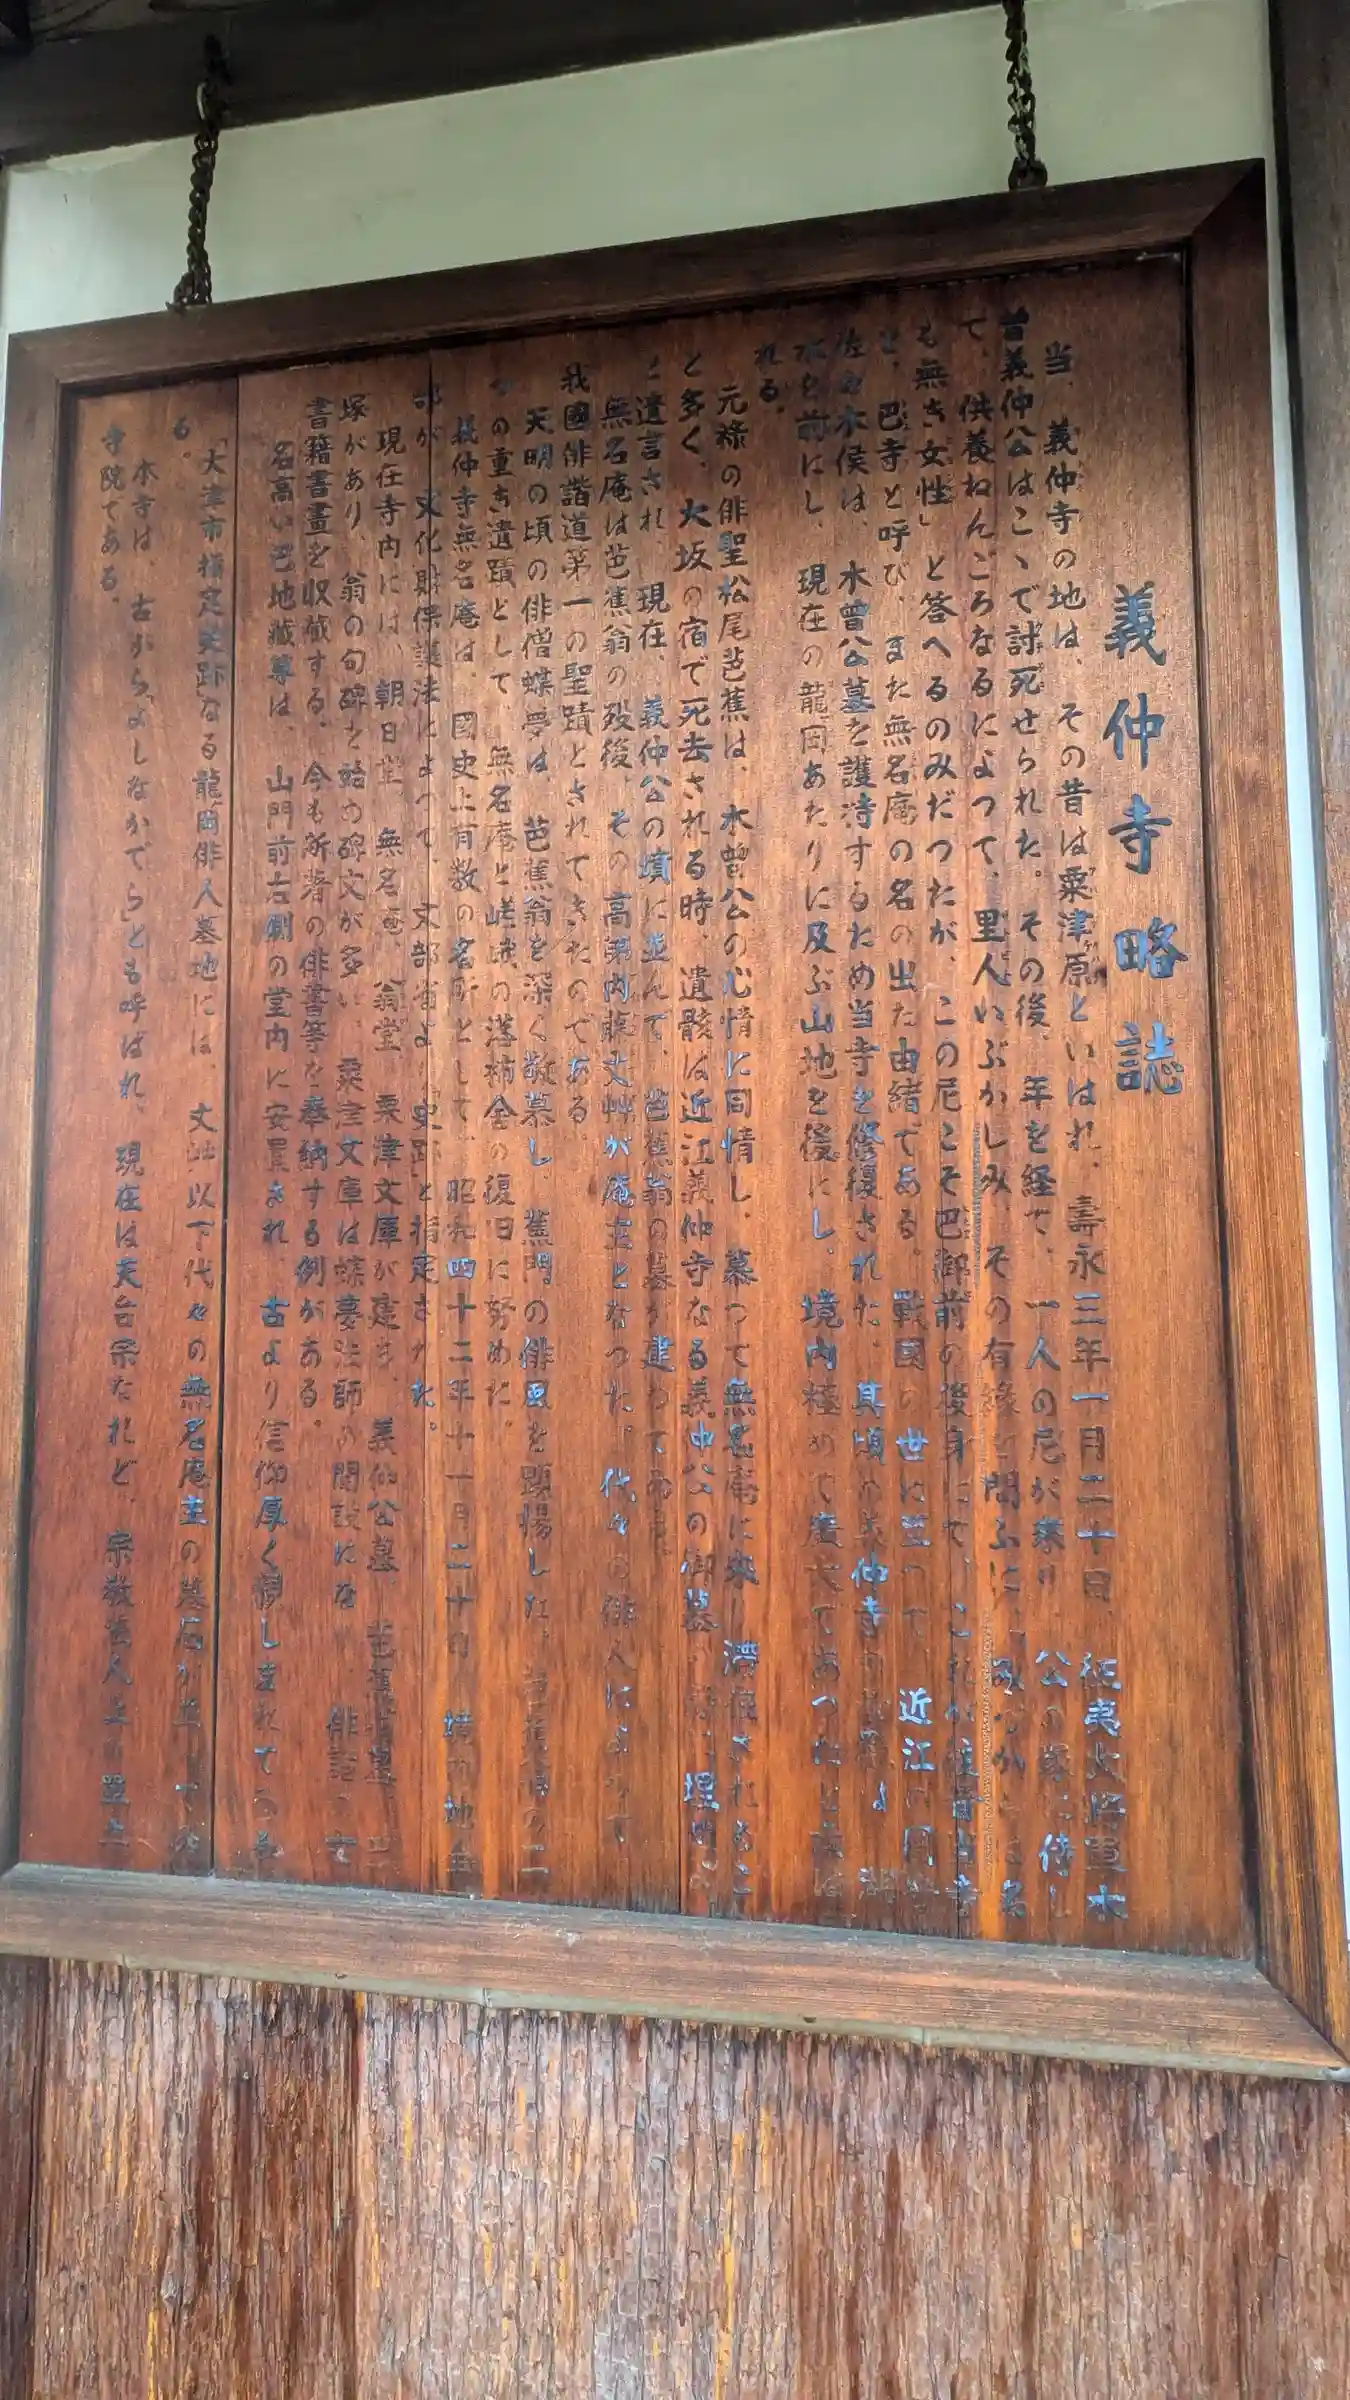 義仲寺略誌
当、義仲寺の地は、その昔は粟津原といはれ、壽永三年一月二十日、征夷大将軍木
曽義仲公はこゝで討死せられた。その後、年を経て、一人の尼が来り、公の塚に侍し
て、供養ねんごろなるによつて、里人いぶかしみ、その有縁を問ふに、みづからは名
も無き女性」と答へるのみだつたが、この尼こそ巴御前の後身にて、これが往昔当寺
を、巴寺と呼び、また無名庵の名の出た由緒である。戰國の世に至つて、近江の國
佐々木侯は、木曽公墓を護持するため当寺を修復された。其頃の義仲寺の
水を前にし、現在の龍岡あたりに及ぶ山地を後にし、境内極めて廣大であつたと
れる。
元祿の俳聖松尾芭蕉は、木曽公の心情に同情し、慕つて無名庵に来り滞在されること
と多く、大坂の宿で死去される時、遺骸は近江義仲寺なる義仲公の御墓の、埋め
と遺言され、現在、義仲公の墳に並んで、芭蕉翁の墓が建つてゐる。
無名庵は芭蕉翁の歿後、その高弟内藤丈艸が庵主となつた。代々の俳人によつて
我國俳諧道第一の聖蹟とされてきたのである。
天明の頃の俳僧蝶夢は、芭蕉翁を深く敬慕し、蕉門の俳風を顕揚した。の二
つの重き遺蹟として、無名庵と嵯峨の落柿舎の復旧に努めた。
義仲寺無名庵は、國史上有数の名所として、昭和四十二年十一月二十日、境内地全
部が、文化財保護法によつて、文部省より「史跡」と指定された。
現在寺内には、朝日堂、無名庵、翁堂、粟津文庫が建ち、義仲公墓、芭蕉翁墓、
塚があり、翁の句碑を始め碑文が多い。粟津文庫は蝶夢法師の開設にな、俳諧の
書籍書畫を収蔵する。今も所著の俳書等を奉納する例がある。
名高い巴地蔵尊は、山門前右側の堂内に安置され、古より信仰厚く親しまれてゐる
「大津市指定史跡」なる龍岡俳人墓地には、丈艸以下代々の無名庵主の墓石が並
る。
本寺は、古から「よしなかでら」とも呼ばれ、現在は天台宗なれど、宗教法人上の單立
寺院である。